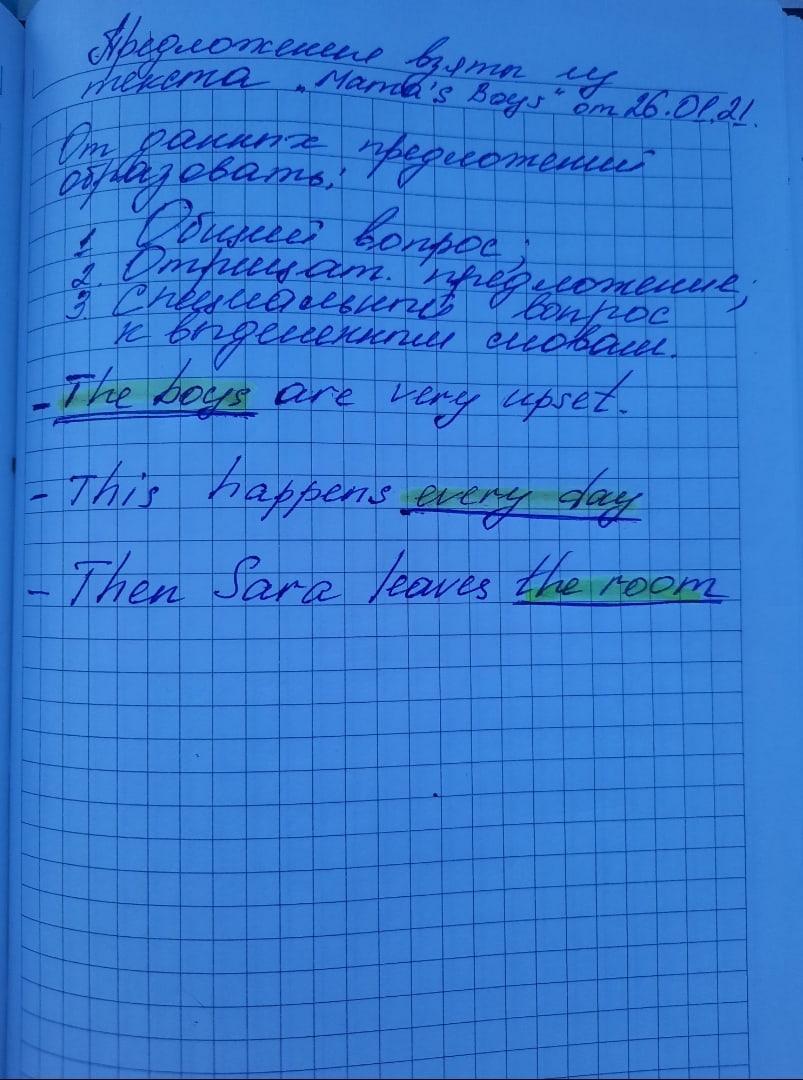 Предложения взяты из
текста „Mama's Boys" от 26.01.21.
От данных предложений
образовать:
1 Общий вопрос;
2. Отрицат. предложение;
3. Специальный вопрос
к выделенным словам.
- The boys are very upset.
- This happens every day
- Then Sara leaves the room